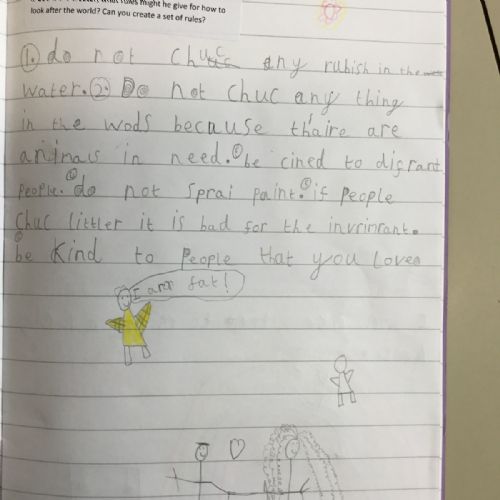 rules might he give for how to
look after the world? Can you create a set of rules?
1. do not chucc any rubish in the
water. 2. Do not chuc any thing
in the wods because thaire are
animals in need. be cined to difrant
People. do not sprai paint. if people
chuc littler it is bad for the invrimrant.
be kind to people that you loves
I am fat!